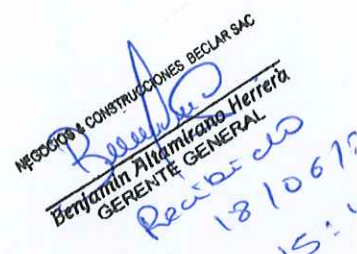 NEGOCIOS & CONSTRUCCIONES BECLAR SAC
Benjamín Altamirano Herrera
GERENTE GENERAL
Recibido
18/06/2
15: